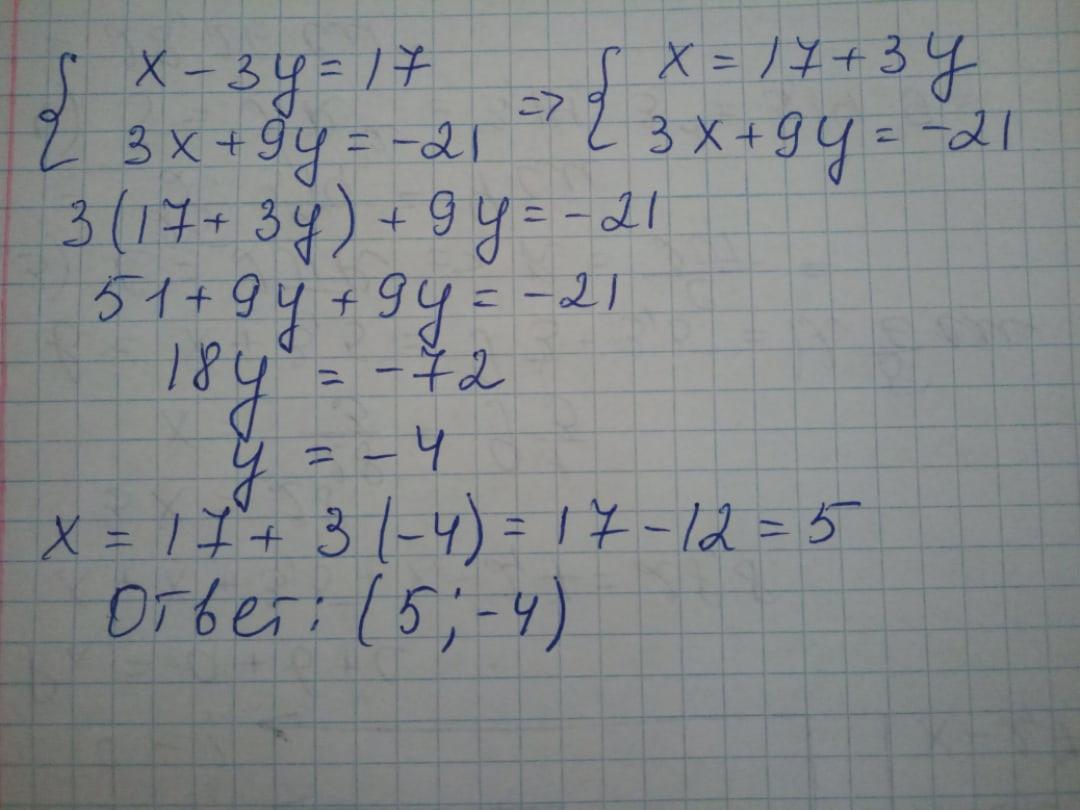 { x - 3y = 17 => { x = 17 + 3y
3x + 9y = -21 3x + 9y = -21
3(17 + 3y) + 9y = -21
51 + 9y + 9y = -21
18y = -72
y = -4
x = 17 + 3(-4) = 17 - 12 = 5
Ответ: (5; -4)